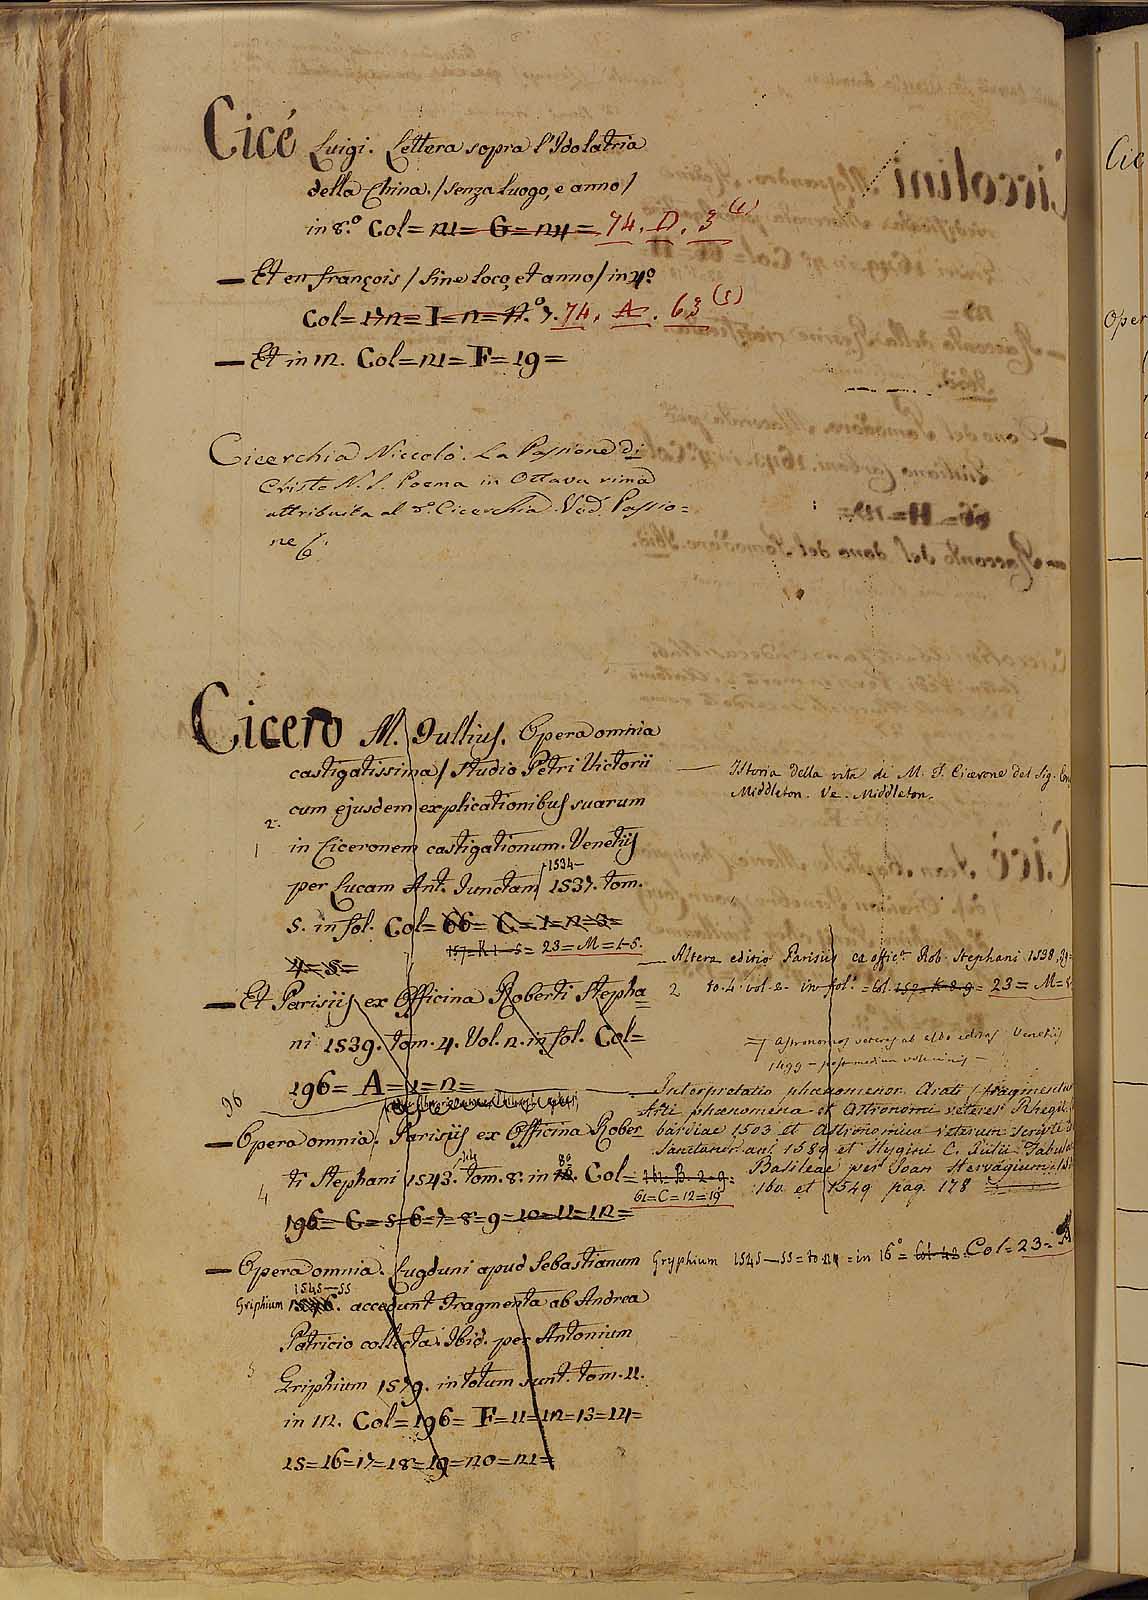 Cicé Luigi. Lettera sopra l'Idolatria
della China. / senza luogo, e anno /
in 8.º Col = 121 = G = 124 = 74. D. 3 (1)
— Et en françois / sine loco, et anno / in 4º
Col = 172 = I = 12 = N.º 7. 74. A. 63 (5)
— Et in 12. Col = 121 = F = 19 =
Cicerchia Niccolò. La Passione di
Cristo N. S. Poema in Ottava rima
attribuita al dº. Cicerchia. Ved. Passio=
ne
Cicero M. Tullius. Opera omnia
castigatissima / studio Petri Victorii
cum ejusdem explicationibus suarum
2.
1 in Ciceronem castigationum. Venetiis
1534 —
per Lucam Ant. Junctam 1537. tom.
5. in fol. Col = 66 = C = 1 = 2 = 3 =
157 = K 1 - 5 = 23 = M = 1-5.
4 = 5 =
— Et Parisiis ex Officina Roberti Stepha
ni 1539. tom. 4. Vol. 2. in fol. Col =
196 = A = 1 = 2 =
96
— Opera omnia. Parisiis ex Officina Rober
ti Stephani 1543. tom. 8. in 8º Col = 161. B. 2-9 =
4
61 = C = 12 = 19
196 = C = 5 = 6 = 7 = 8 = 9 = 10 = 11 = 12 =
— Opera omnia. Lugduni apud Sebastianum Gryphium 1545 — 55 = in 16º = Col. Col = 23 =
1545 — 55
Griphium 1546. accedunt Fragmenta ab Andrea
Patricio collecta. Ibid. per Antonium
Griphium 1579. in totum sunt. tom. 11.
in 12. Col = 196 = F = 11 = 12 = 13 = 14 =
15 = 16 = 17 = 18 = 19 = 20 = 21 =
— Istoria della vita di M. T. Cicerone del Sig.
Middleton. Ve. Middleton.
— Altera editio Parisiis ex offic. Rob. Stephani 1538.
2 to. 4. vol. 2. in fol. = Col. 157 = K = 8-9 = 23 = M =
Astronomos veteres ab Aldo editos Venetiis
1499 — post medium voluminis —
— Interpretatio phaenomenor. Arati / fragmentum
Arti phaenomena et Astronomi veteres Rhegii
bardiae 1503 et Astronomica veterum scripta
Sanctandr. ani 1589 et Hygini C. Julii Fabulae
Basileae per Joan Hervagium
et 1549 pag. 178
Cic
Oper